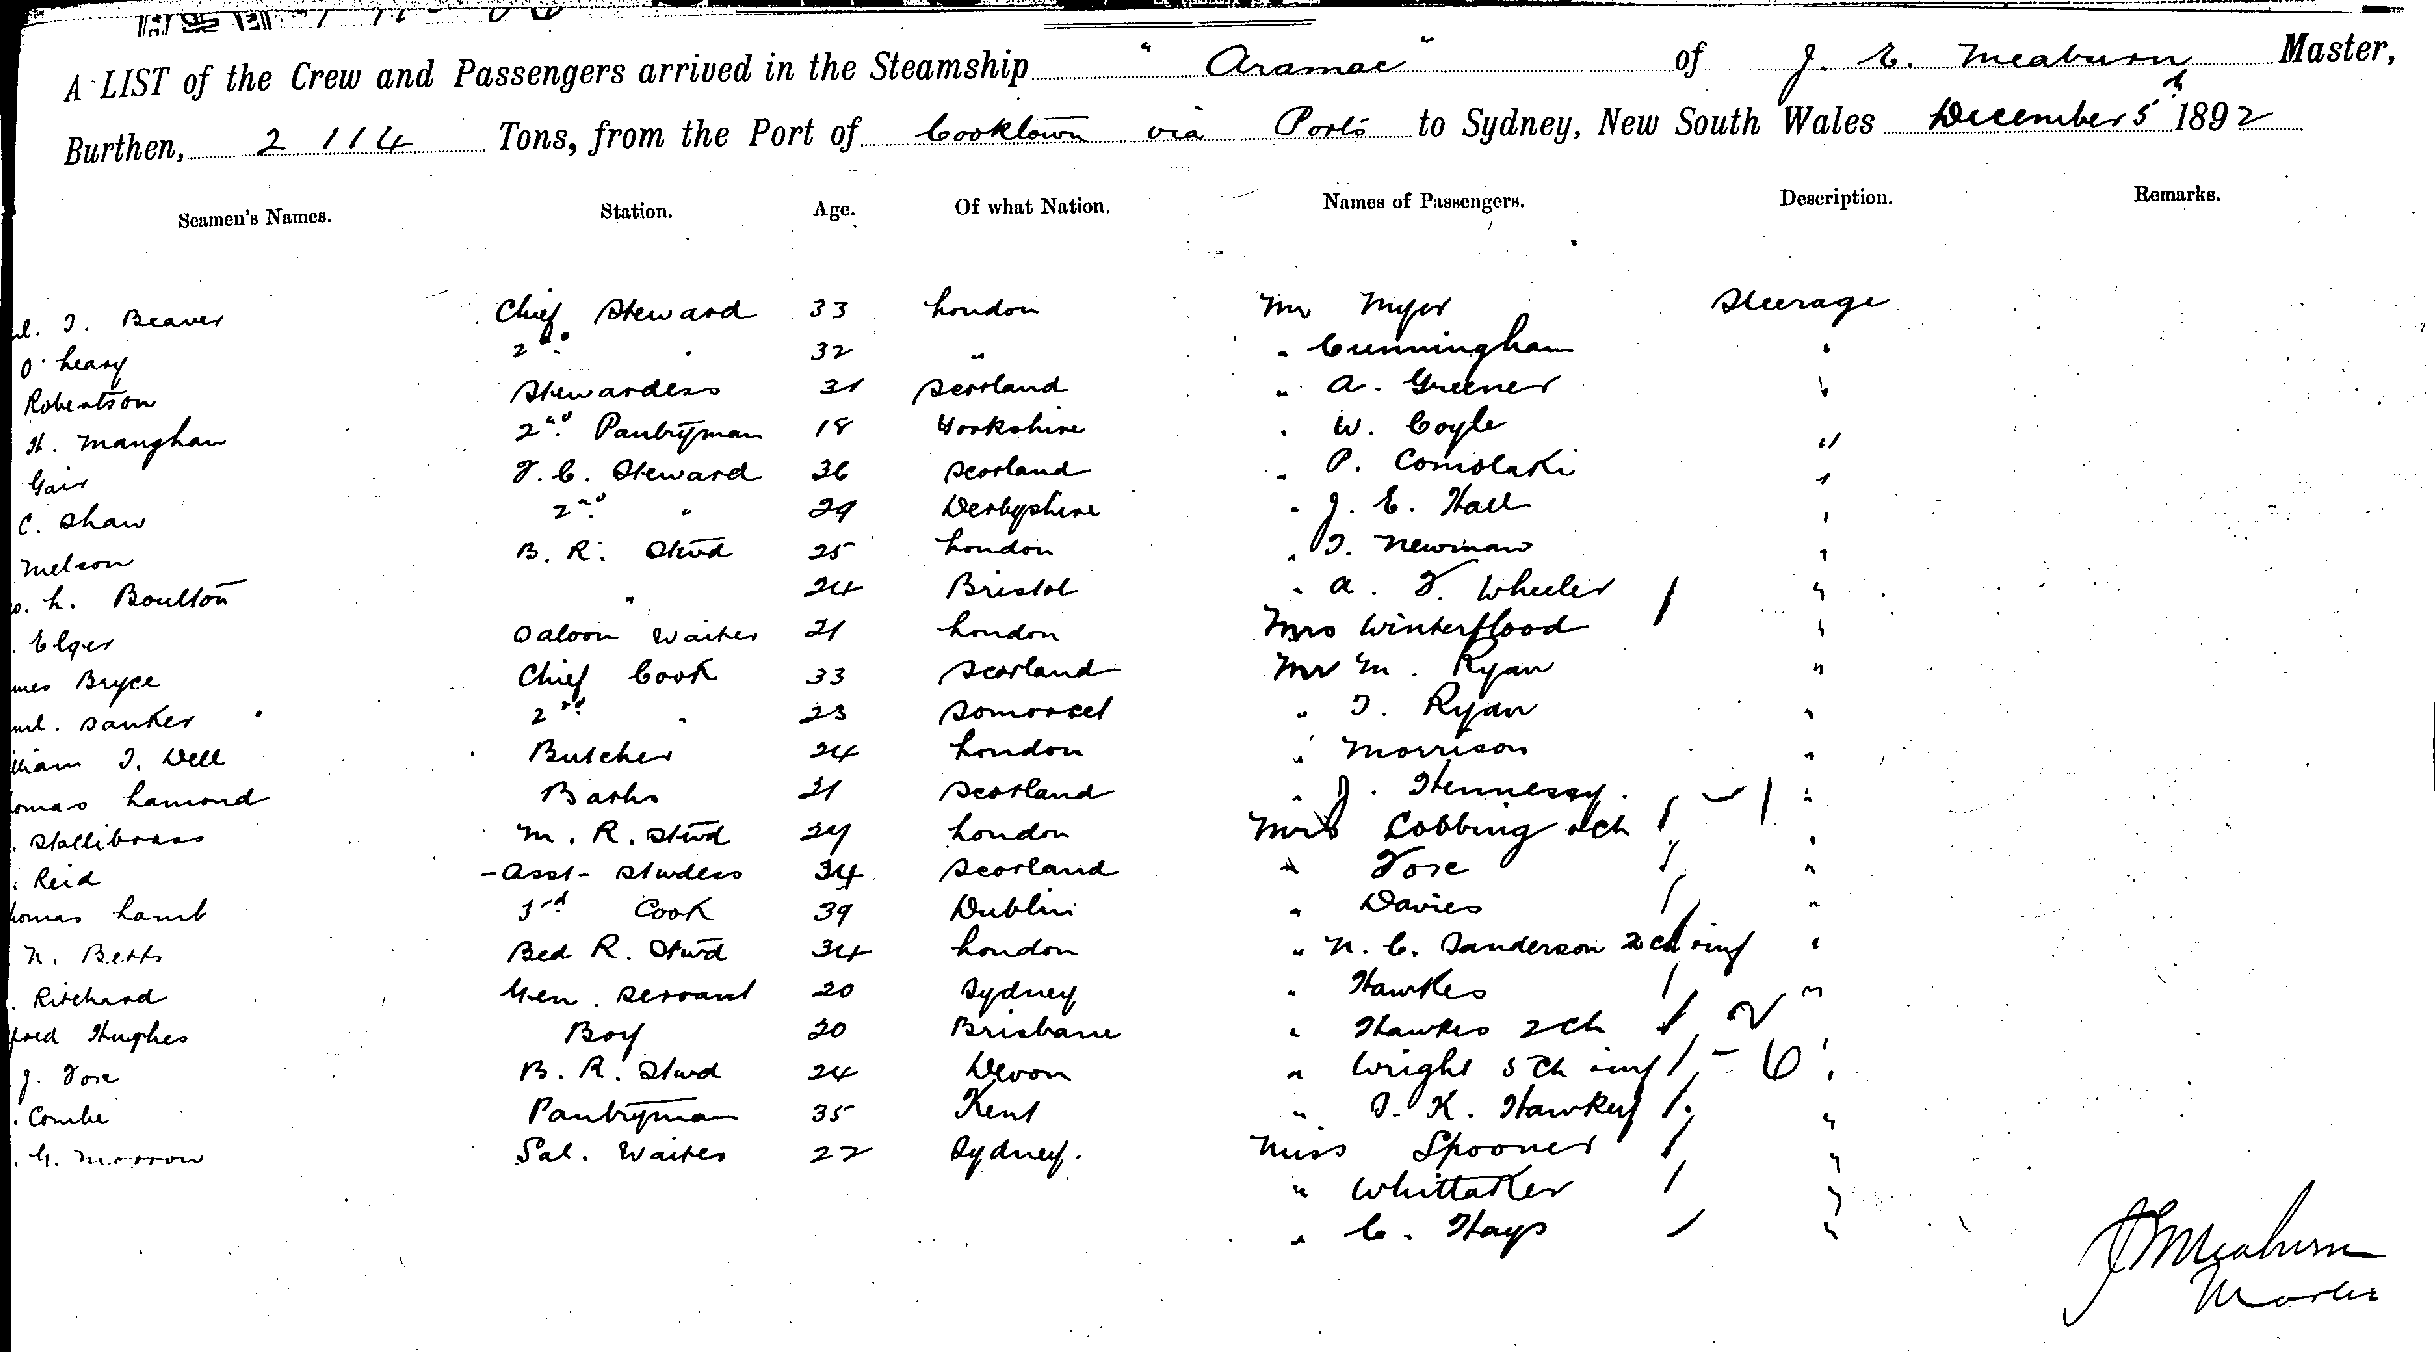 A LIST of the Crew and Passengers arrived in the Steamship "Aramac" of J. E. Meaburn Master,
Burthen, 2114 Tons, from the Port of Cooktown via Ports to Sydney, New South Wales December 5th 1892
Seamen's Names. Station. Age. Of what Nation. Names of Passengers. Description. Remarks.
T. Beaver Chief Steward 33 London Mr Myer Steerage
O'Leary 2nd " 32 " " Cunningham "
Robertson Stewardess 31 Scotland " A. Greener "
H. Manghan 2nd Pantryman 18 Yorkshire " W. Coyle "
Gair F. C. Steward 36 Scotland " P. Comolaki "
C. Shaw 2nd " 29 Derbyshire " J. E. Hall "
Melson B. R. Stwd 25 London " T. Newman "
L. Boulton " 24 Bristol " A. F. Wheeler "
Elger Saloon Waiter 21 London Mrs Winterflood "
Bryce Chief Cook 33 Scotland Mr M. Ryan "
Sanker 2nd " 23 Somerset " T. Ryan "
T. Dell Butcher 24 London " Morrison "
Lamond Baths 21 Scotland " J. Hennessy. "
Stallibrass M. R. Stwd 29 London Mrs Cobbing & ch 1 "
Reid - Asst - Stwdess 34 Scotland " Fore "
Lamb 3rd Cook 39 Dublin " Davies "
N. Betts Bed R. Stwd 34 London " N. C. Sanderson 2 ch inf "
Ritchard Gen. Servant 20 Sydney " Hawkes "
Hughes Boy 20 Brisbane " Hawkes 2 ch 2 "
J. Fore B. R. Stwd 24 Devon " Wright 5 ch inf - 6 "
Combe Pantryman 35 Kent " T. K. Hawkey "
G. Morrow Sal. Waiter 22 Sydney. Miss Spooner "
" Whittaker "
" C. Hays "
J E Meaburn
Master